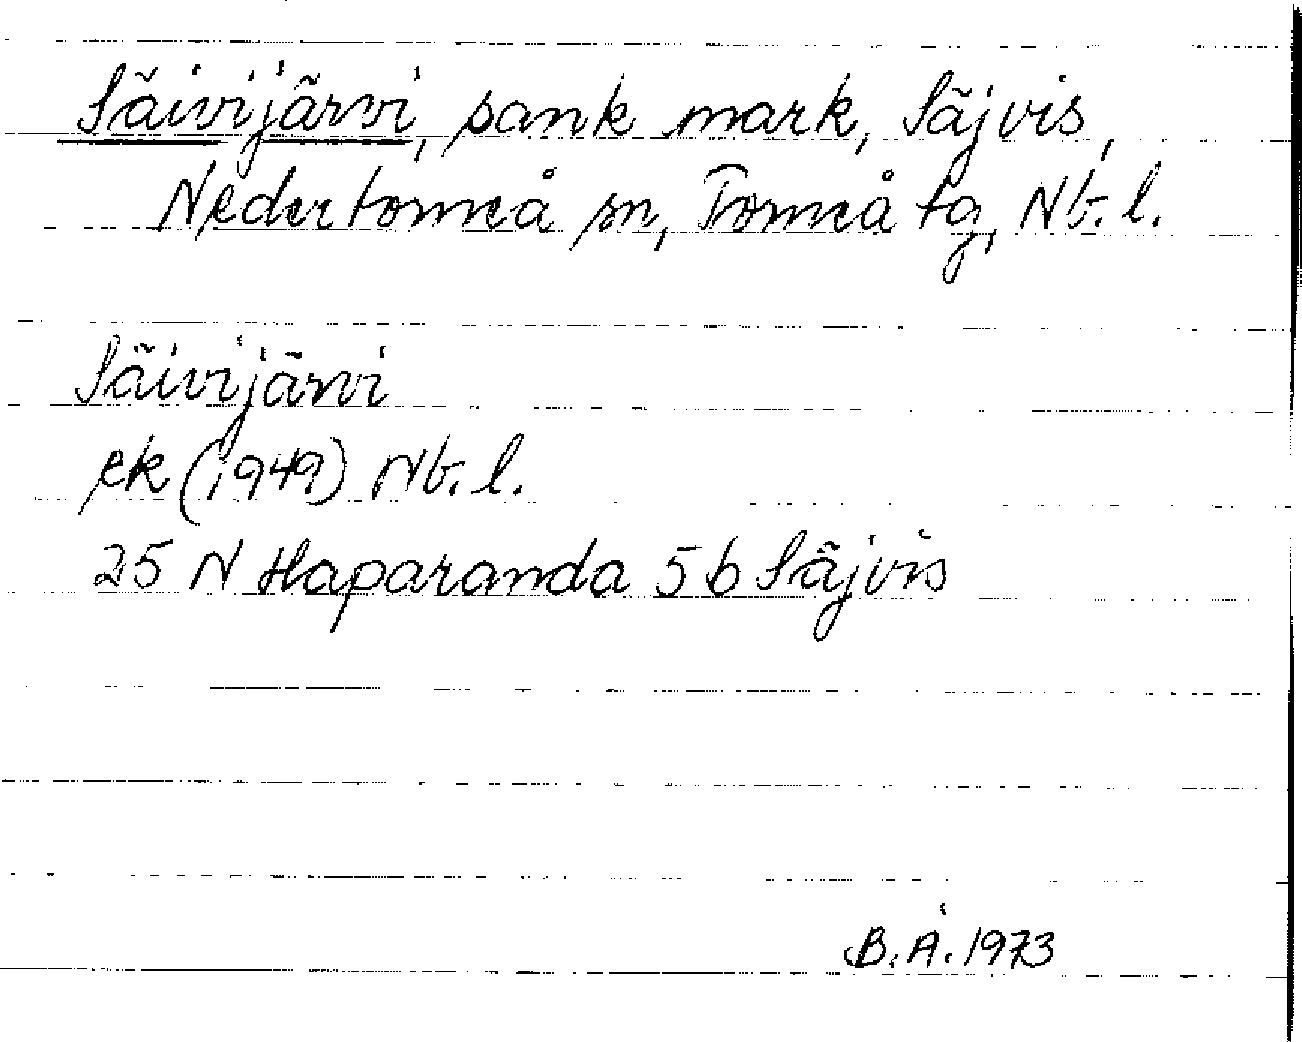 Säivijärvi, sank mark, Säjvis,
Nedertorneå sn, Torneå tg, Nb. l.
Säivijärvi
ek (1949) Nb. l.
25 N Haparanda 5 b Säjvis
B. Å. 1973